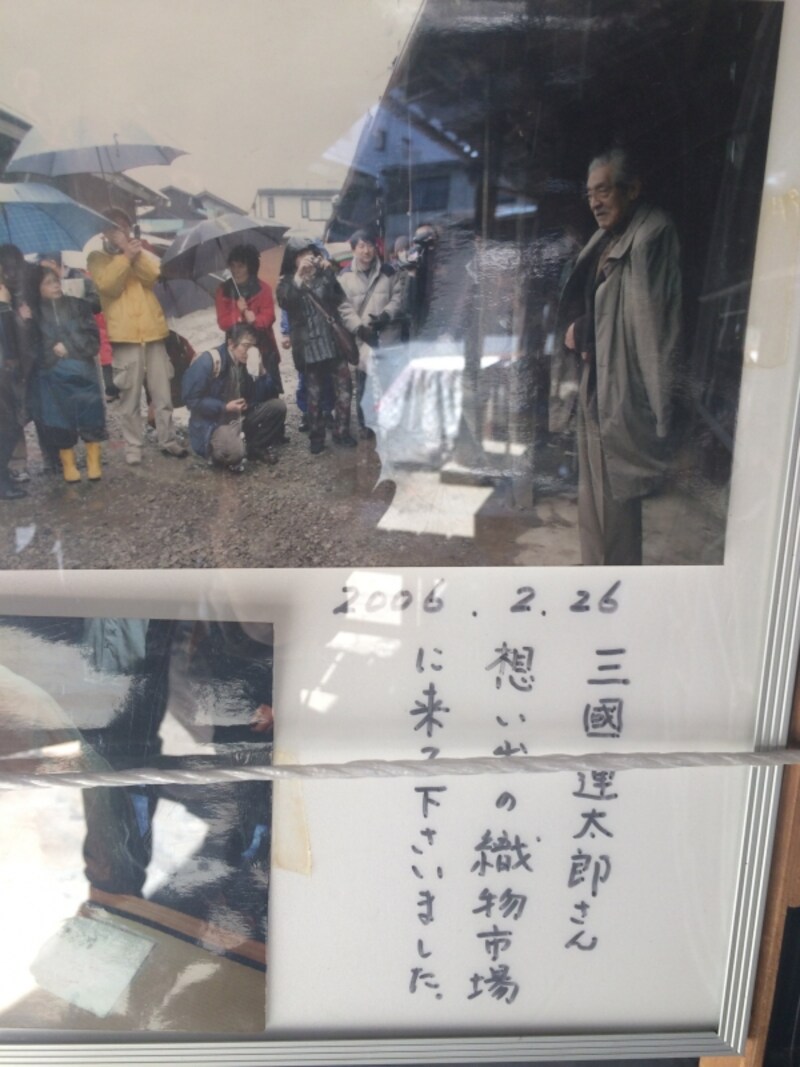 2006.2.26
三國連太郎さん
想い出の織物市場
に来て下さいました。